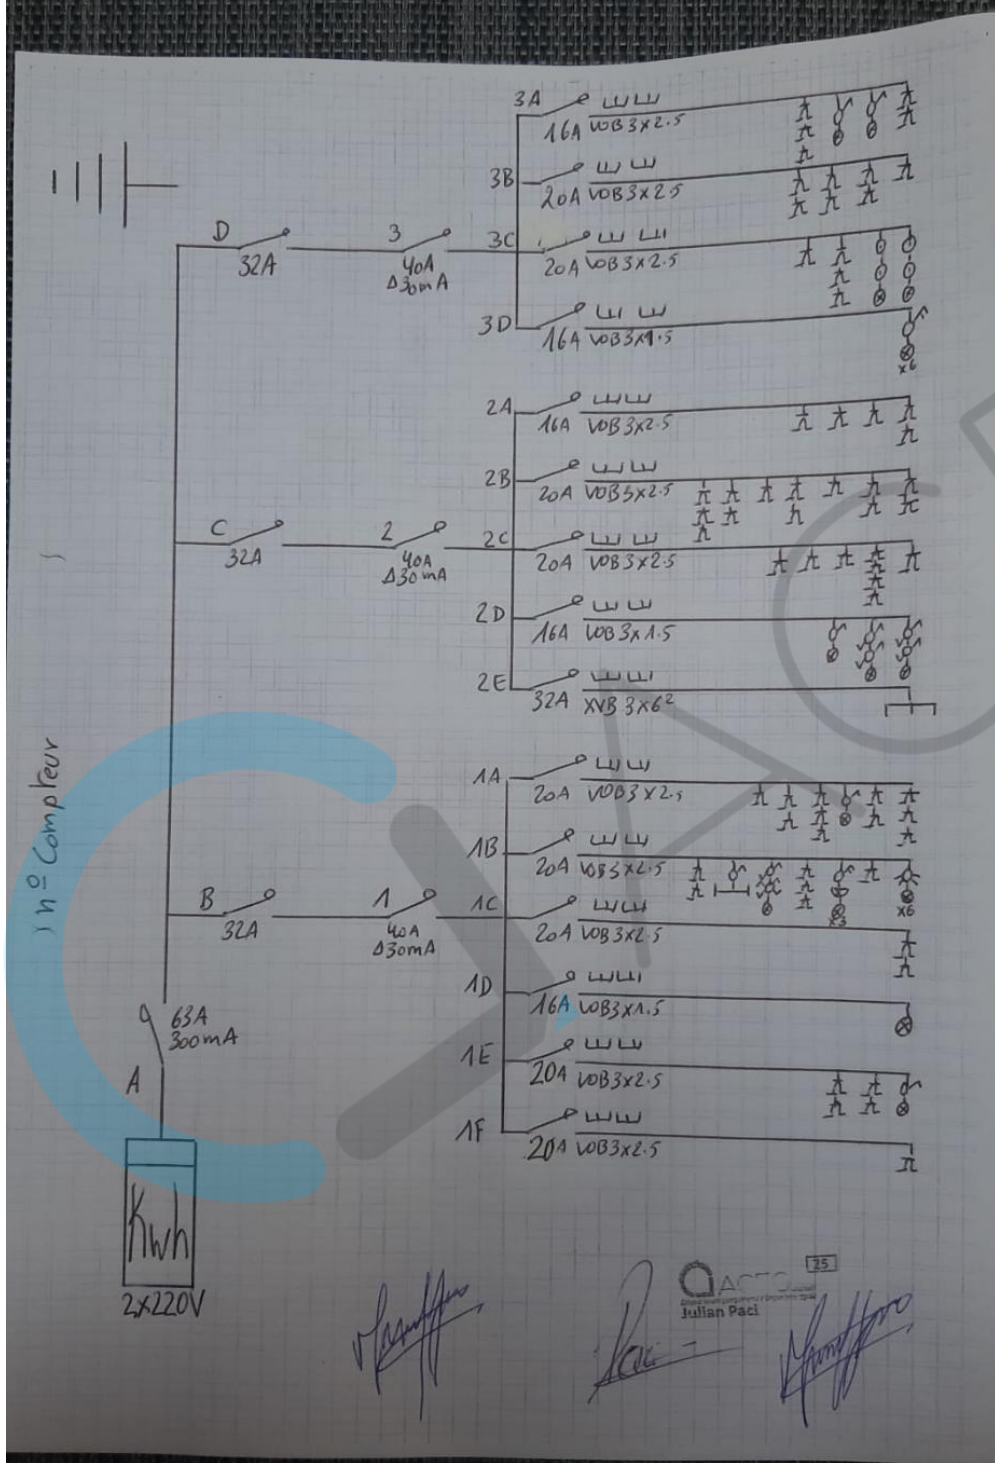 3A
16A VOB 3x2.5
3B
20A VOB 3x2.5
D
32A
3
40A
Δ30mA
3C
20A VOB 3x2.5
3D
16A VOB 3x1.5
x6
2A
16A VOB 3x2.5
2B
20A VOB 3x2.5
C
32A
2
40A
Δ30mA
2C
20A VOB 3x2.5
2D
16A VOB 3x1.5
2E
32A XVB 3x6²
1A
20A VOB 3x2.5
1B
20A VOB 3x2.5
x3
x6
B
32A
1
40A
Δ30mA
1C
20A VOB 3x2.5
1D
16A VOB 3x1.5
63A
300mA
1E
20A VOB 3x2.5
A
1F
20A VOB 3x2.5
Kwh
2x220V
nº Compteur
25
ACTO
Julian Paci